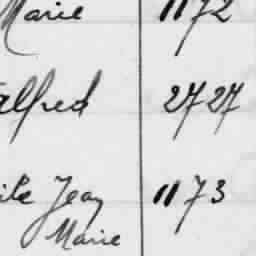 Marie 1172
Alfred 2727
ile Jean 1173
Marie